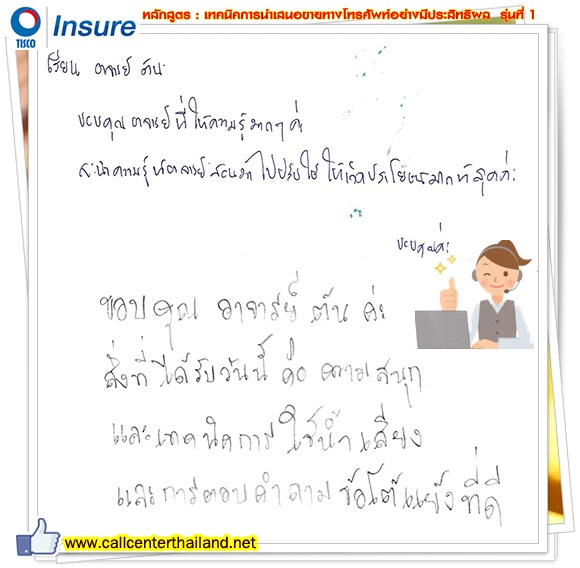 TISCO Insure
หลักสูตร : เทคนิคการนำเสนอขายทางโทรศัพท์อย่างมีประสิทธิผล รุ่นที่ 1
เรียน อาจารย์ ต้น
ขอบคุณ อาจารย์ ที่ ให้ความรู้มากๆ ค่ะ
จะนำความรู้ ที่อาจารย์สอนมา ไปปรับใช้ ให้เกิดประโยชน์มากที่สุดค่ะ
ขอบคุณค่ะ
ขอบคุณ อาจารย์ ต้น ค่ะ
สิ่งที่ได้รับวันนี้ คือ ความสนุก
และเทคนิคการใช้น้ำเสียง
และการตอบคำถาม ข้อโต้แย้งที่ดี
www.callcenterthailand.net